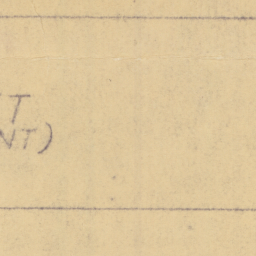 T
NT)